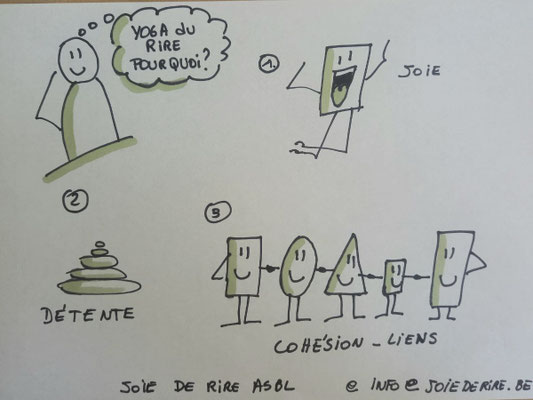 YOGA du
RIRE
POURQUOI?
1.
JOIE
2
3
DÉTENTE
COHÉSION - LIENS
JOIE DE RIRE ASBL @ INFO@JOIEDERIRE.BE